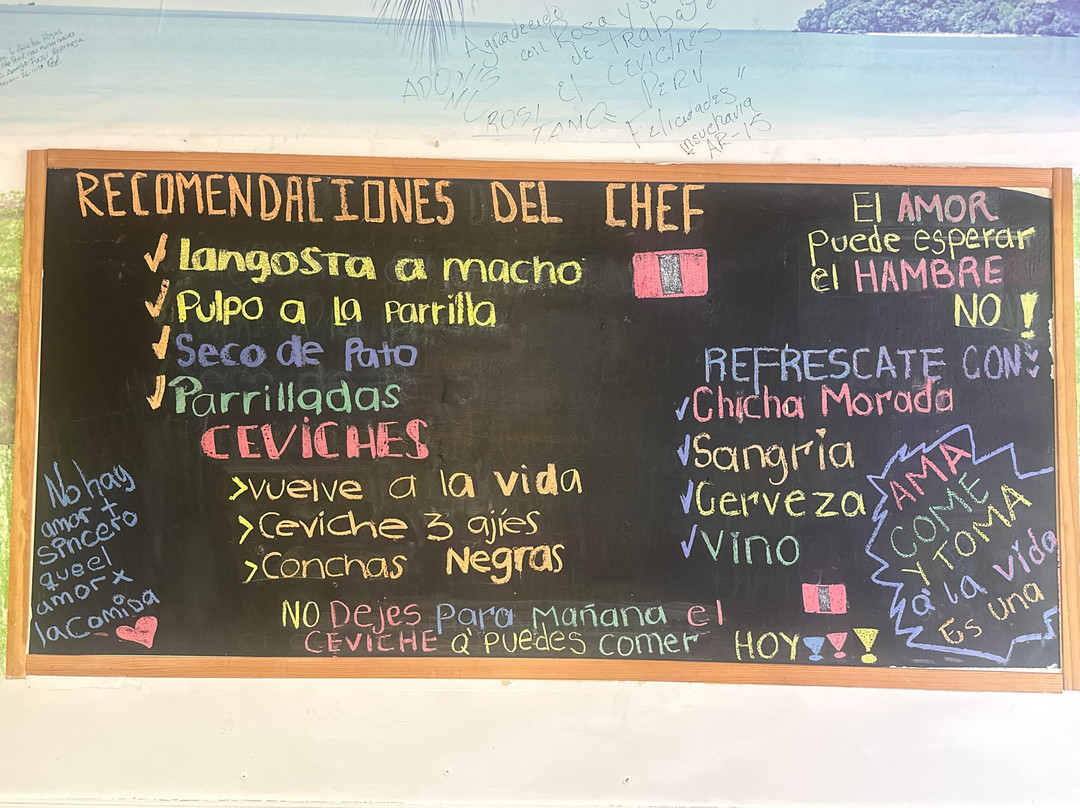 Agradecido
con Rosa y su
de TRABAJO
ADONIS
el CEVICHES
PERÚ
Felicidades
AR-15
RECOMENDACIONES DEL CHEF
✓ Langosta a macho
✓ Pulpo a la Parrilla
✓ Seco de Pato
✓ Parrilladas
CEVICHES
>vuelve a la vida
>Ceviche 3 ajíes
>Conchas Negras
El AMOR
Puede esperar
el HAMBRE
NO!
REFRESCATE CON:
✓Chicha Morada
✓Sangria
✓Cerveza
✓Vino
No hay
amor +
sincero
que el
amor x
la Comida
AMA
COME
Y TOMA
Q' la vida
Es una
NO Dejes Para Mañana el
CEVICHE Q' PUEDES COMER HOY